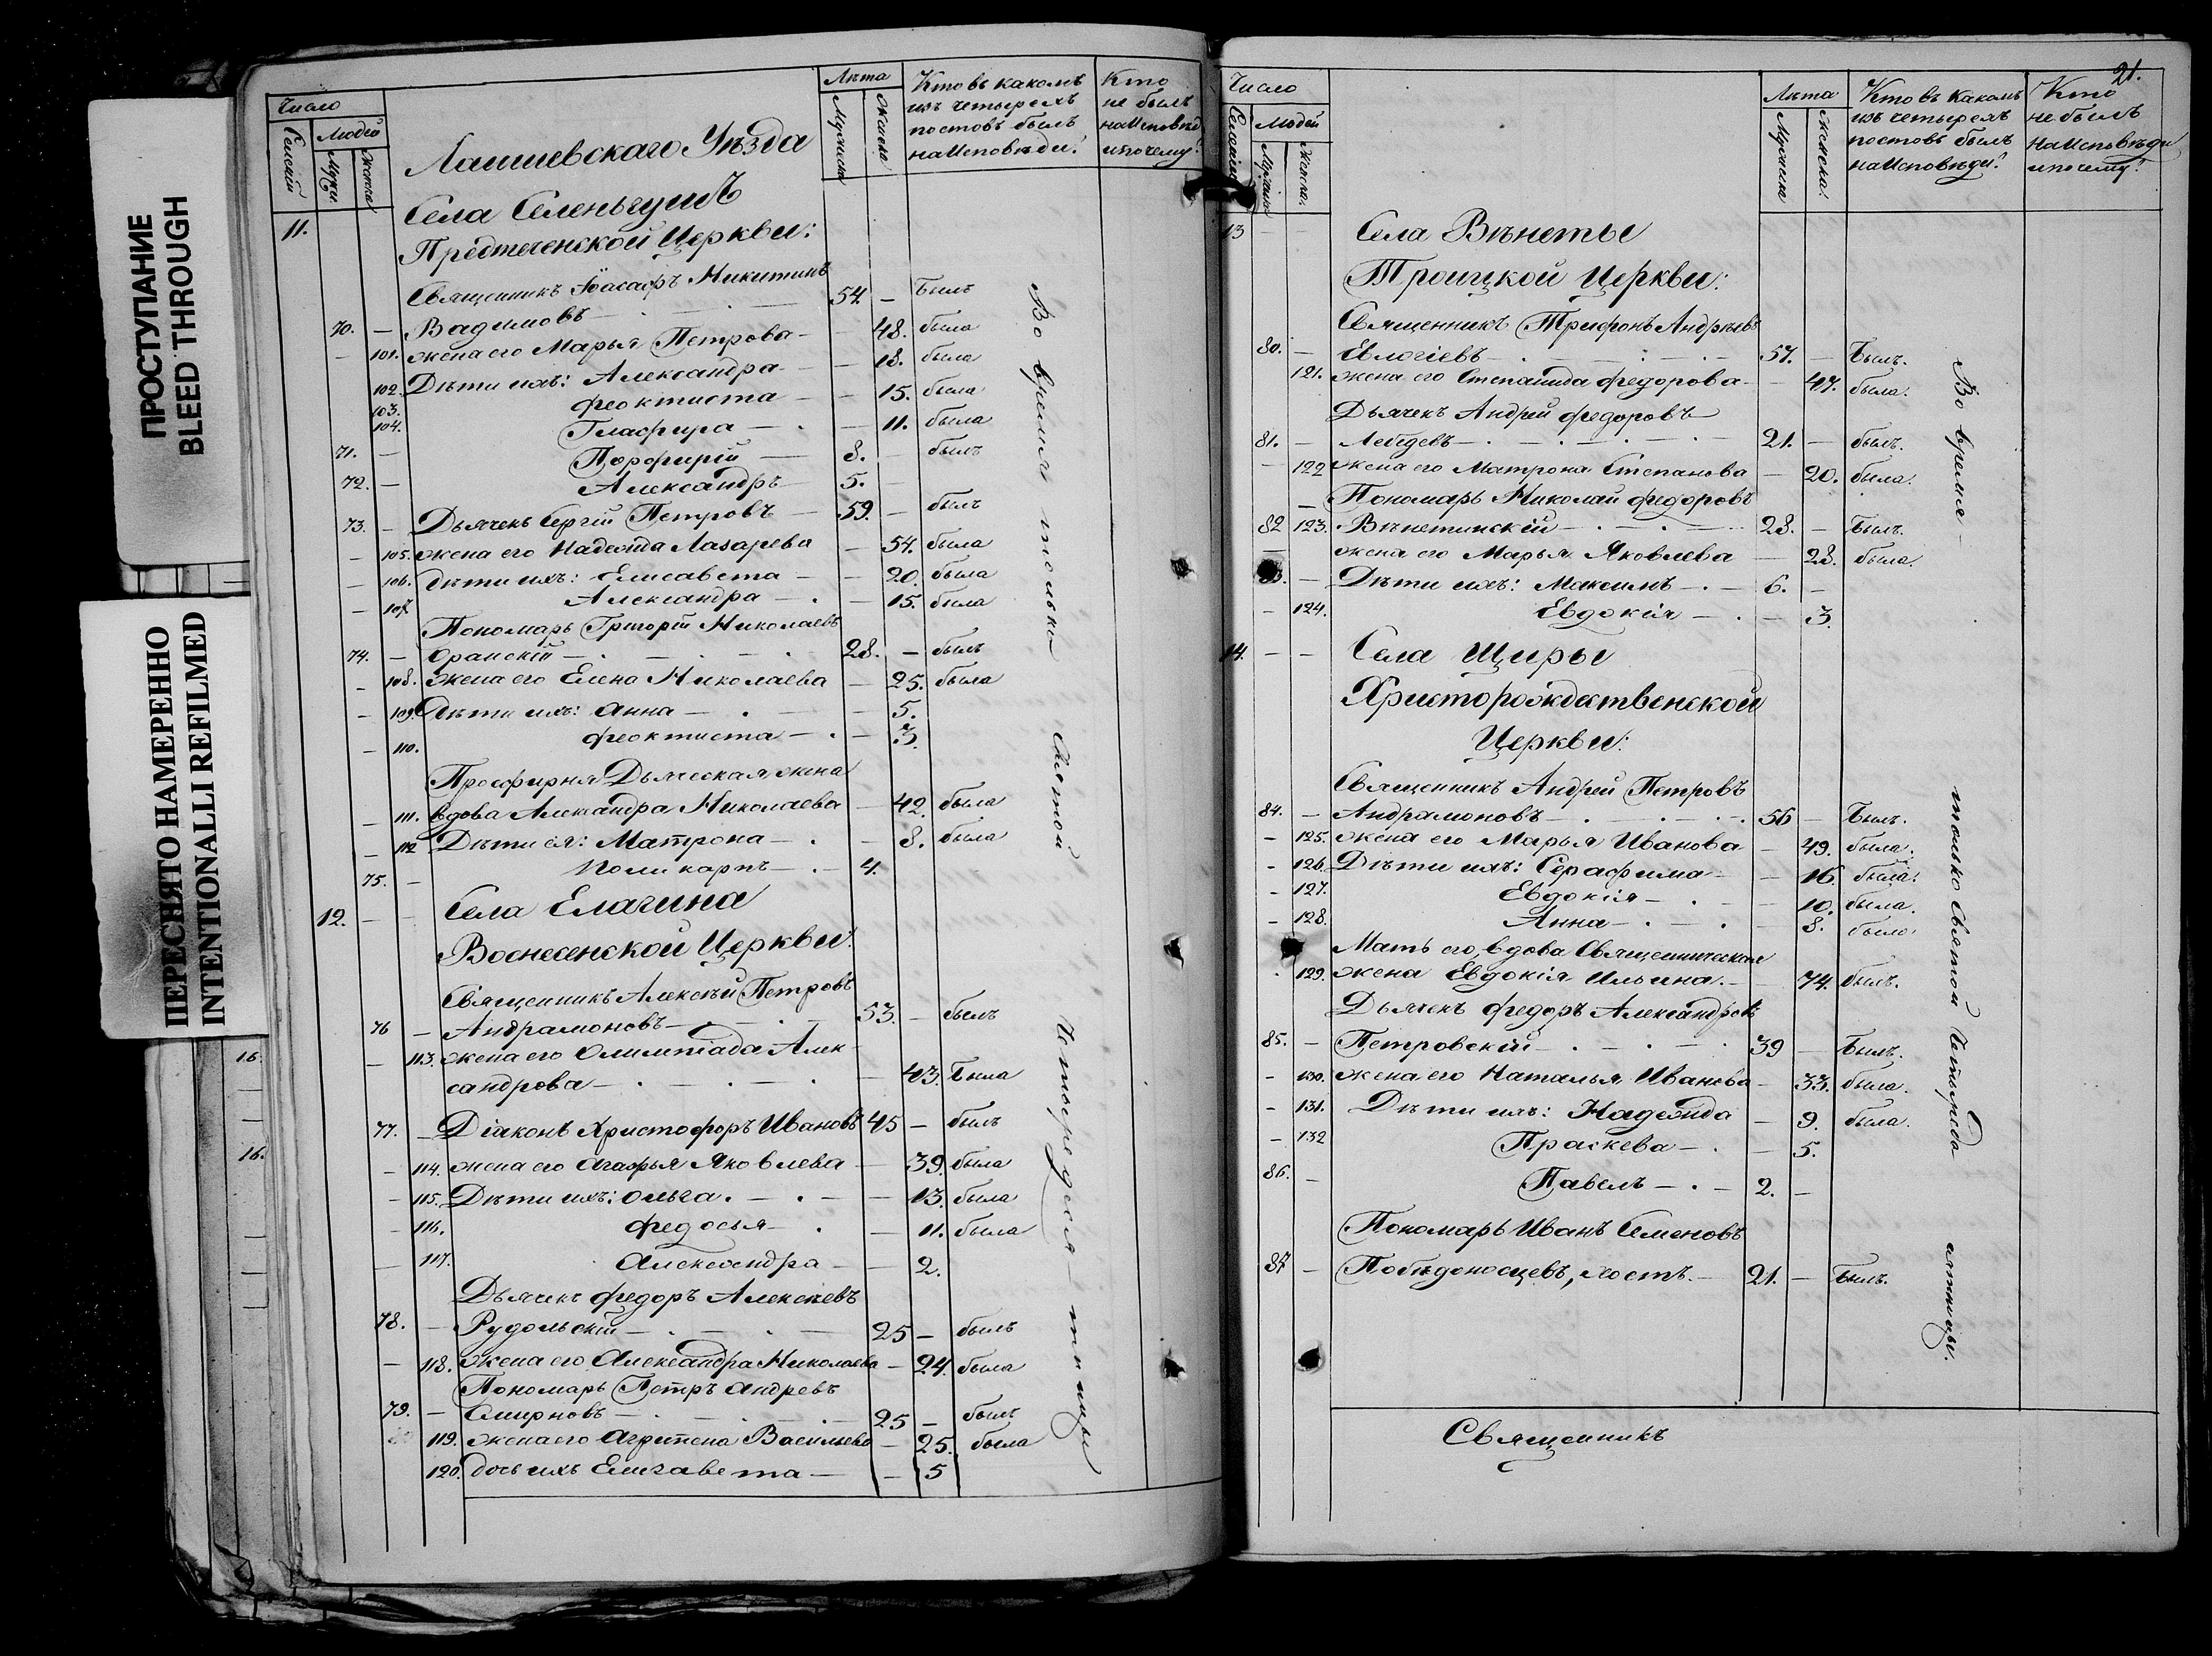 ПРОСТУПАНИЕ
BLEED THROUGH
ПЕРЕСНЯТО НАМЕРЕННО
INTENTIONALLI REFILMED
16.
16.
Число
Людей
Мужи.
Женска
Лаишевскаго Уѣзда
Лѣта
Мужеска
Женска
Кто въ какомъ
изъ четырехъ
постовъ былъ
на Исповѣди?
Кто
не былъ
на Исповѣд
и почему?
11. Села Селеньгушъ
Предтеченской Церкви:
Священникъ Іоасафъ Никитинъ
70. — Вадимовъ — 54 — Былъ
— 101. жена его Марья Петрова — 48. была
102. Дѣти ихъ: Александра — 18. была
103. Феоктиста — 15. была
104. Глафира — 11. была
71. — Порфирій — 8. — былъ
72. — Александръ 5. —
73. — Дьячекъ Сергій Петровъ — 59. — былъ
— 105. жена его Надежда Лазарева — 54. была
— 106. дѣти ихъ: Елисавета — 20. была
— 107. Александра — 15. была
Пономарь Григорій Николаевъ
74. — Оранскій — 28. — былъ
— 108. жена его Елена Николаева — 25. была
— 109. Дѣти ихъ: Анна — 5.
— 110. феоктиста — 3.
Просфирня Дьяческая жена
— 111. вдова Александра Николаева — 42. была
— 112 Дѣти ея: Матрона — 8. была
75. — Поликарпъ — 4.
12. — — Села Елагина
Вознесенской Церкви:
Священникъ Алексѣй Петровъ
76 — Андрамоновъ — 53. — былъ
— 113. жена его Олимпіада Алек-
сандрова — 43. Была
77. — Діаконъ Христофоръ Ивановъ 45 — былъ
— 114. жена его Агафья Яковлева — 39. была
— 115. Дѣти ихъ: Ольга — 13. была
— 116. федосья — 11. была
— 117. Александра — 2.
Дьячекъ федоръ Алексѣевъ
78. — Рудольскій — 25 — былъ
— 118. жена его Александра Николаева — 24. была
Пономарь Петръ Андреевъ
79. — Смирновъ — 25 — былъ
119. жена его Агрипена Васильева — 25. была
120. дочь ихъ Елизавета — 5
Во время только Святой Четыредеся-тницы
21.
Число
Людей
Лѣта
Мужеска
Женска
Кто въ какомъ
изъ четырехъ
постовъ былъ
на Исповѣди?
Кто
не былъ
на Исповѣди
и почему?
13 — — Села Вѣнеты
Троицкой Церкви:
Священникъ Трифонъ Андреевъ
80. — Евлогіевъ — 57. — Былъ.
121. жена его Степанида федорова — 47. была.
Дьячекъ Андрей федоровъ
81. — Лебедевъ — 21. — былъ.
— 122 жена его Матрона Степанова — 20. была.
Пономарь Николай федоровъ
82 123. Вѣнетинскій — 28. — Былъ.
жена его Марья Яковлева — 28. была.
— Дѣти ихъ: Максимъ — 6. —
— 124. Евдокія — 3.
14. — — Села Щиры
Христорождественской
Церкви:
Священникъ Андрей Петровъ
84. — Андрамоновъ — 56 — Былъ.
— 125. жена его Марья Иванова — 49. была.
— 126. Дѣти ихъ: Серафима — 16. была.
— 127. Евдокія — 10. была.
— 128. Анна — 8. была.
Мать его, вдова Священническая
129. жена Евдокія Ильина. — 74. былъ.
Дьячекъ федоръ Александровъ
85. — Петровскій — 39 — Былъ.
— 130. жена его Наталья Иванова — 33. была.
— 131. Дѣти ихъ: Надежда — 9. была.
— 132 Праскева — 5.
86. — Павелъ — 2. —
Пономарь Иванъ Семеновъ
87 — Побѣдоносцевъ, холостъ. — 21. — Былъ.
Во время только Святой Четыреде сятницы.
Священникъ